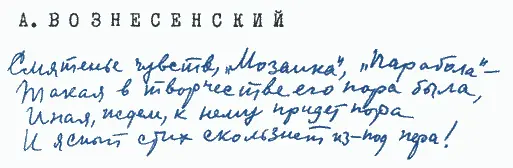 А. ВОЗНЕСЕНСКИЙ
Смятенье чувств, „Мозаика“, „Парабола“ —
Такая в творчестве его пора была,
Иная, ждем, к нему придет пора
И ясный стих скользнет из-под пера!